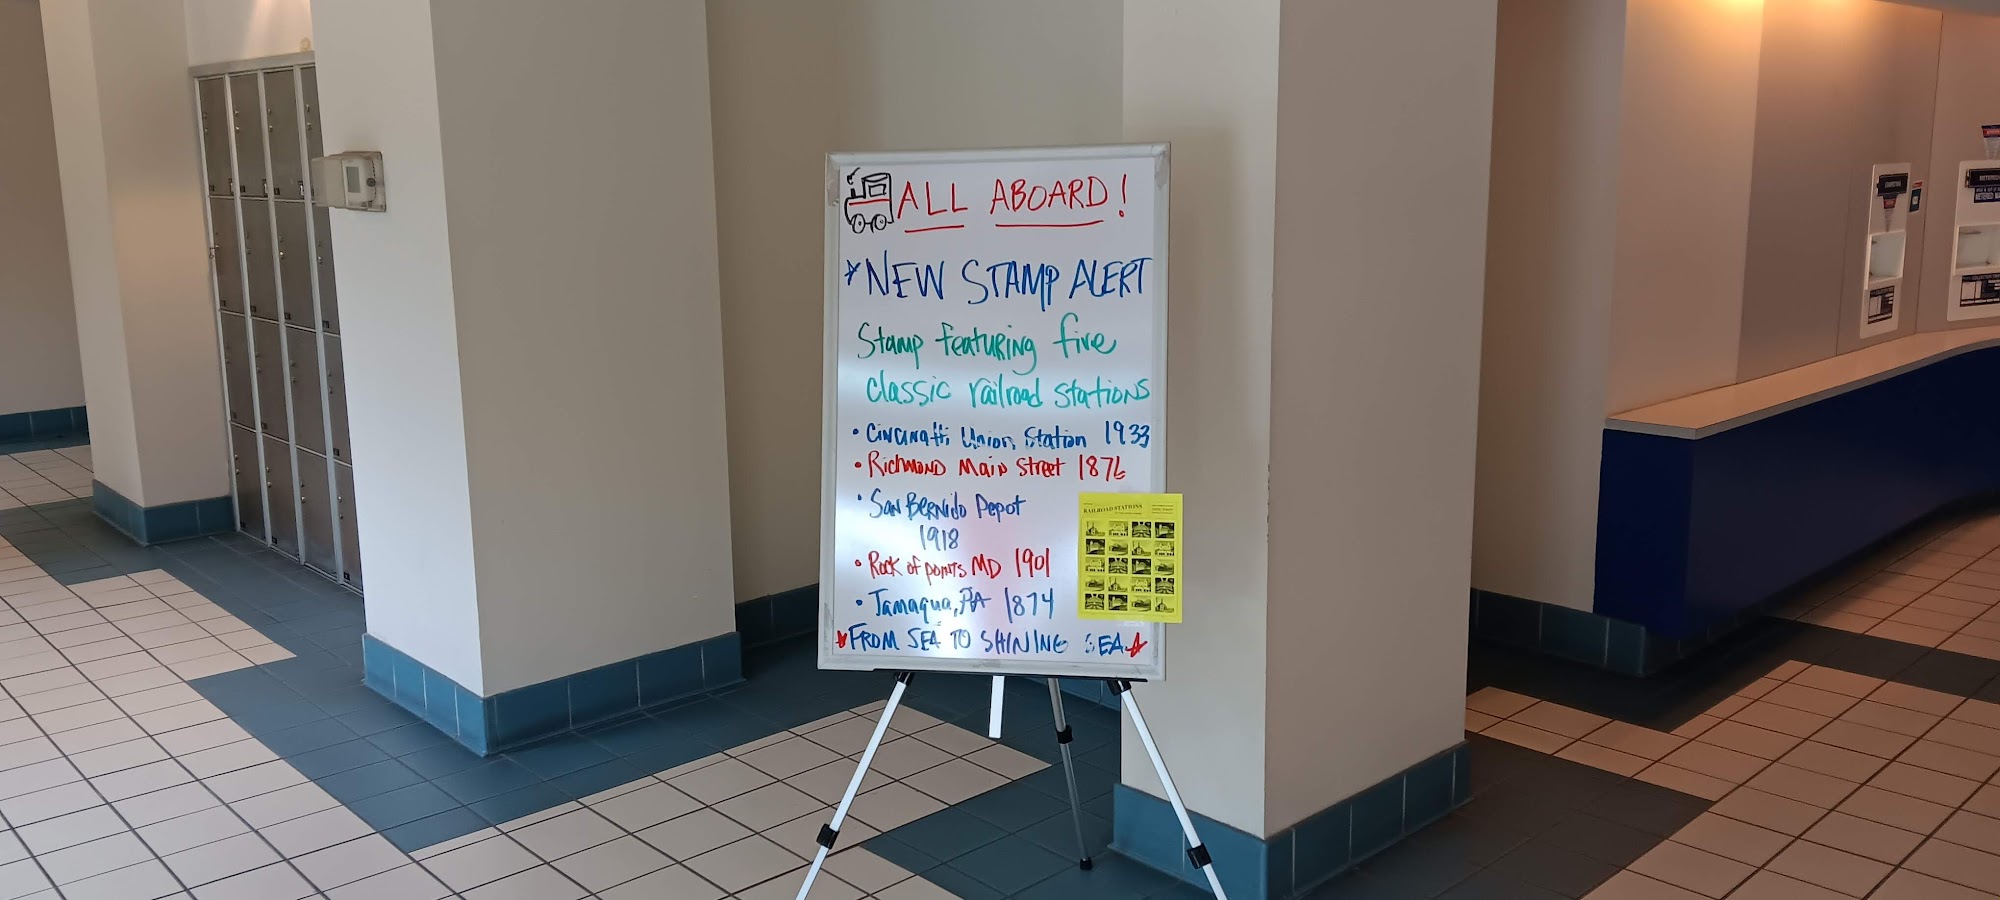 ALL ABOARD!
NEW STAMP ALERT
Stamp featuring five
classic railroad stations
• Cincinatti Union Station 1933
• Richmond Main Street 1876
• San Bernido Depot
1918
• Rock of points MD 1901
• Tamaqua, PA 1874
FROM SEA TO SHINING SEA
RAILROAD STATIONS